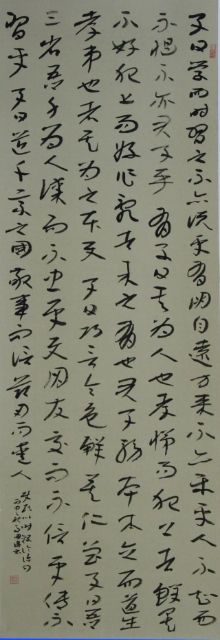 子曰學而時習之不亦說乎有朋自遠方來不亦樂乎人不知而
不慍不亦君子乎有子曰其為人也孝悌而犯上者鮮矣
不好犯上而好作亂者未之有也君子務本本立而道生
孝弟也者其為之本與子曰巧言令色鮮矣仁曾子曰吾
三省吾身為人謀而不忠乎與朋友交而不信乎傳不
習乎子曰道千乘之國敬事而信節用而愛人